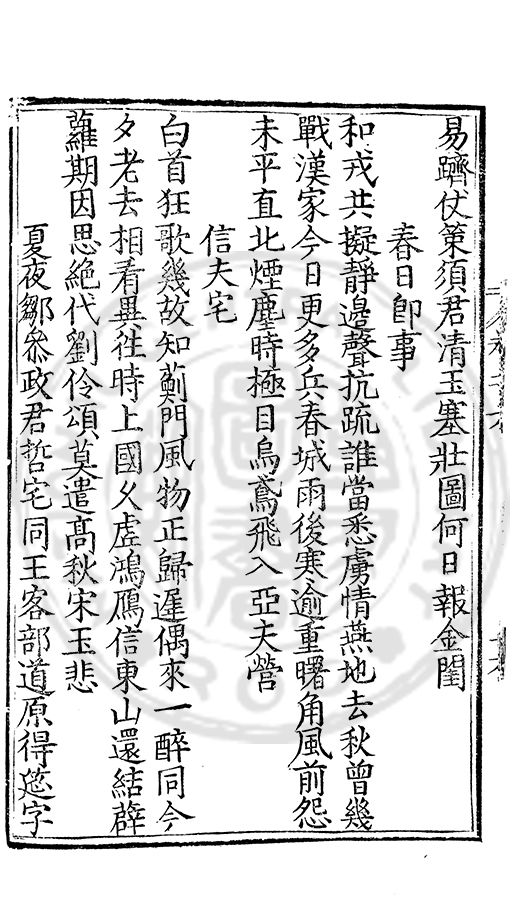 易躋仗策須君清玉塞壯圖何日報金閨
春日即事
和戎共擬靜邊聲抗疏誰當悉虜情燕地去秋曾幾
戰漢家今日更多兵春城雨後寒逾重曙角風前怨
未平直北煙塵時極目烏鳶飛入亞夫營
信夫宅
白首狂歌幾故知薊門風物正歸遲偶來一醉同今
夕老去相看異往時上國久虛鴻鴈信東山還結薜
蘿期因思絶代劉伶頌莫遣高秋宋玉悲
夏夜鄒叅政君哲宅同王客部道原得筵字